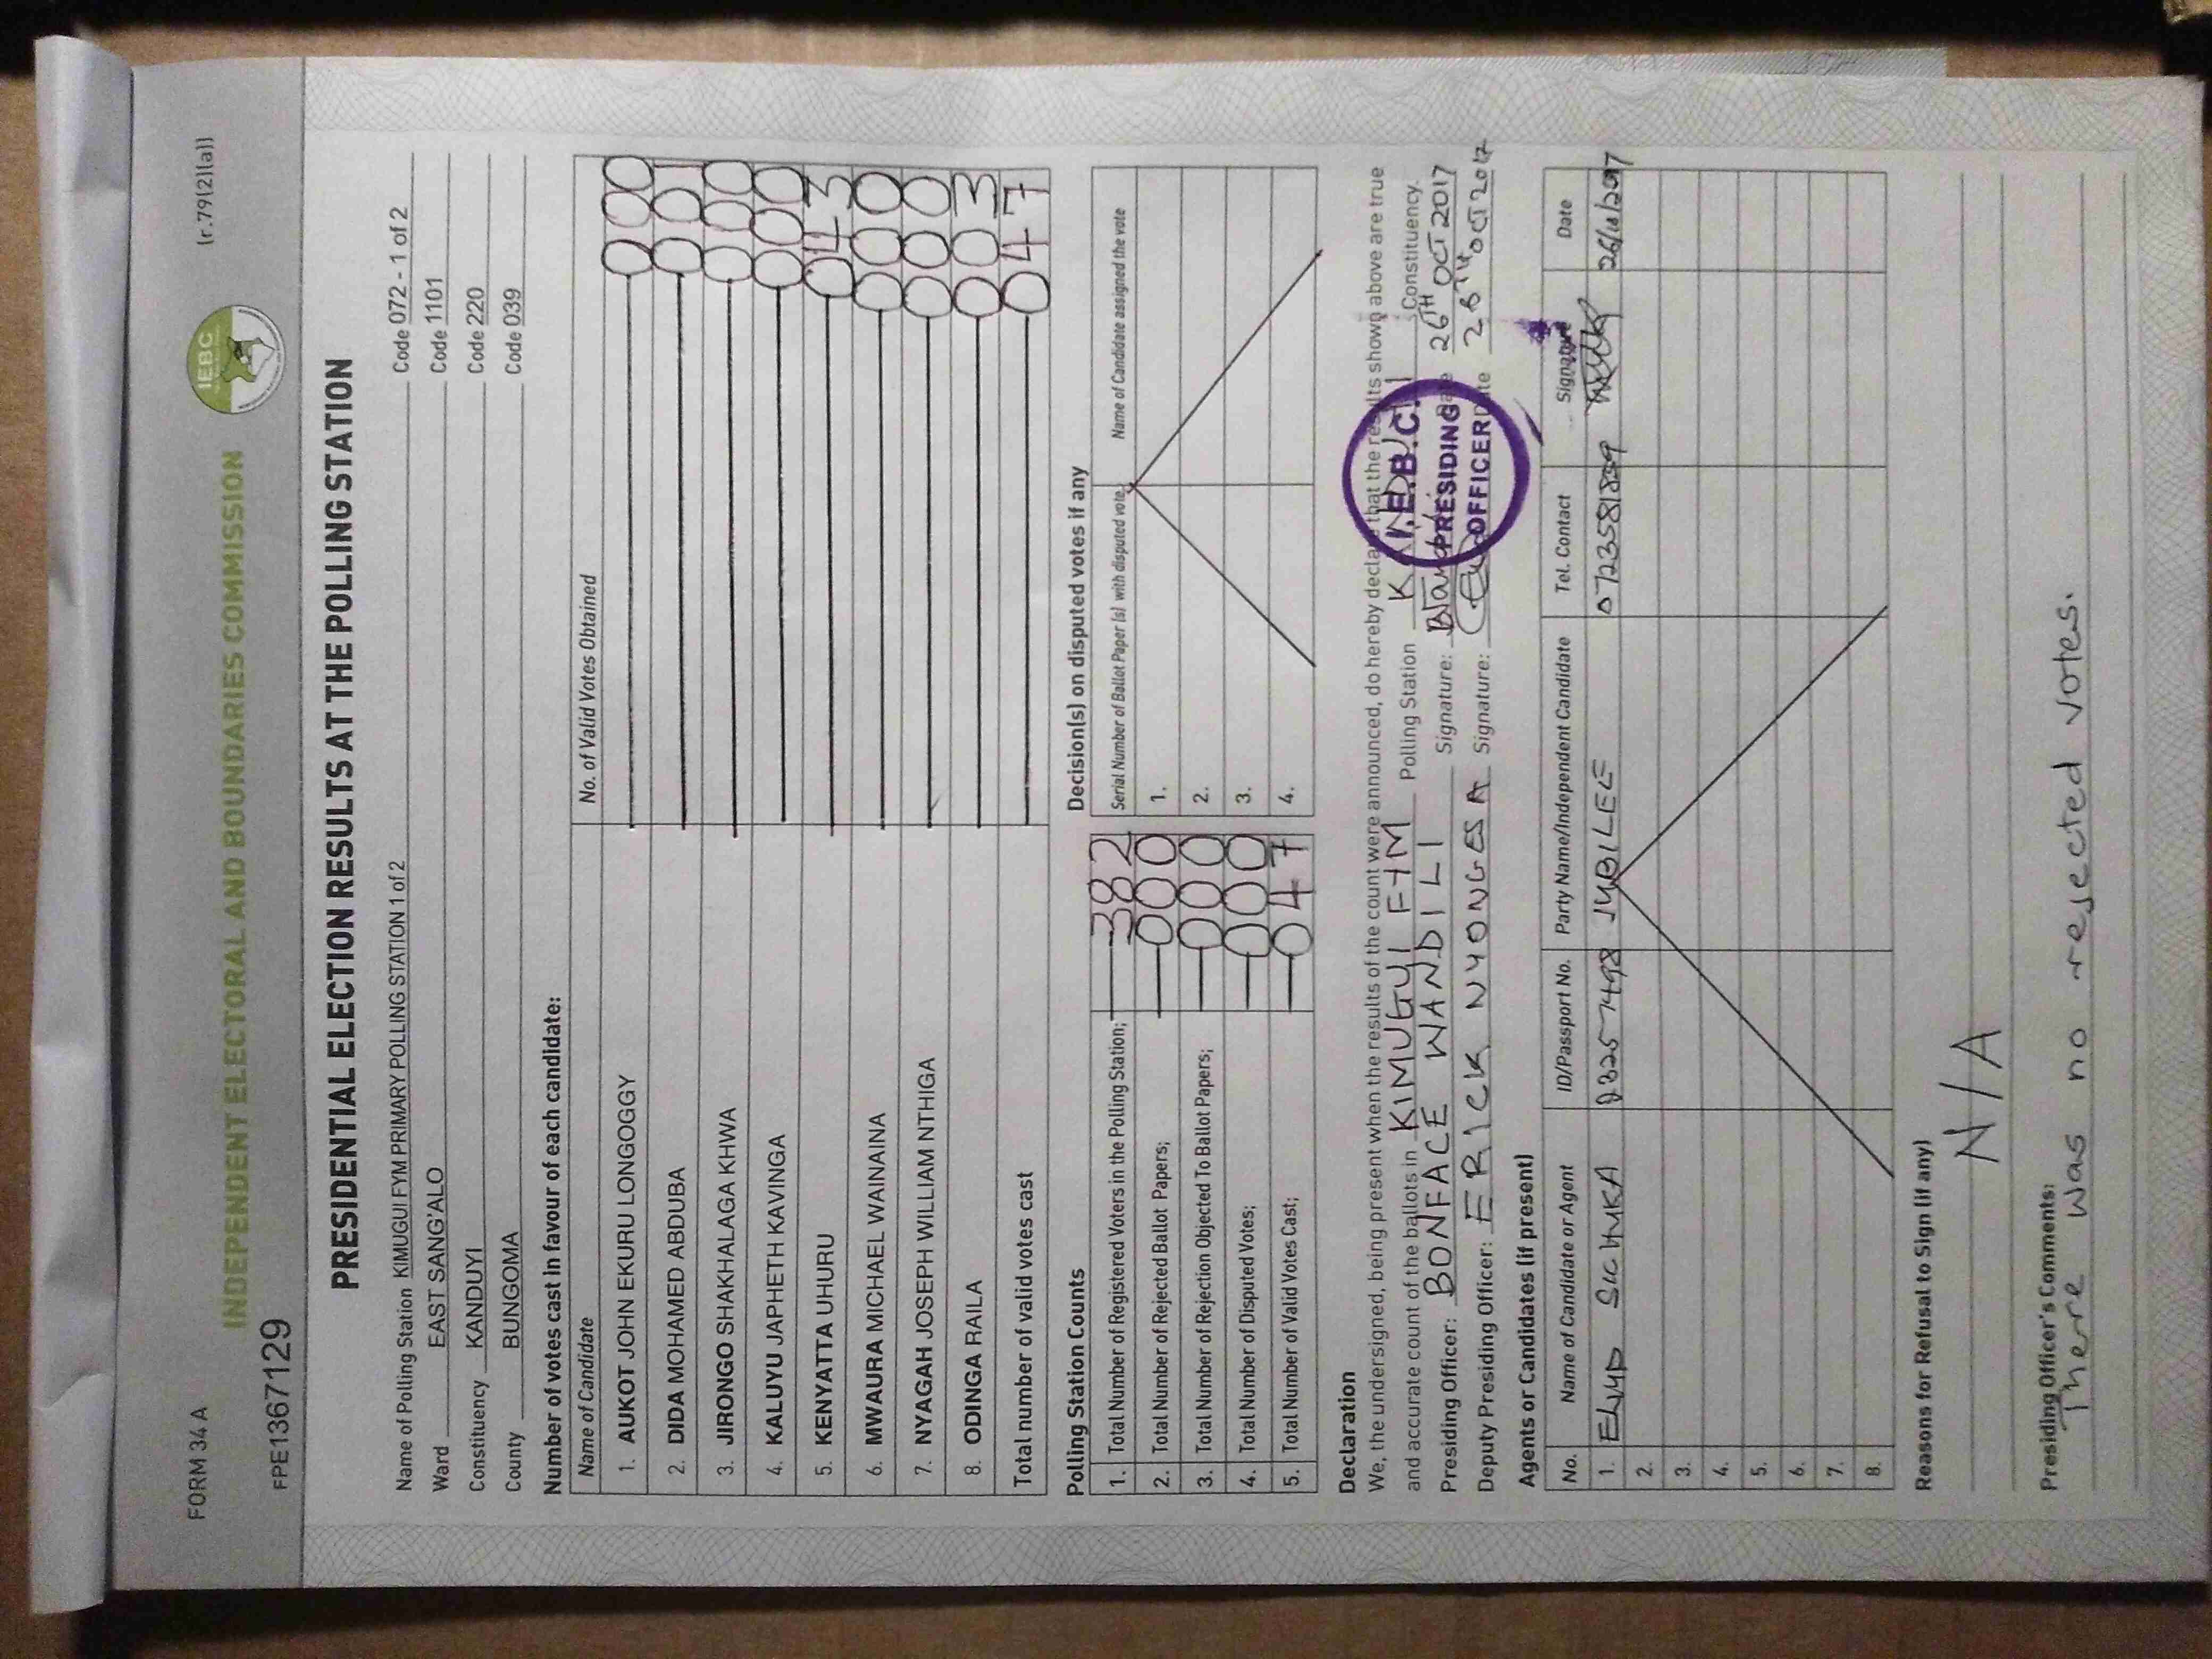 FORM 34 A
(r.79(2)(a))
IEBC
INDEPENDENT ELECTORAL AND BOUNDARIES COMMISSION
FPE1367129
PRESIDENTIAL ELECTION RESULTS AT THE POLLING STATION
Name of Polling Station KIMUGUI FYM PRIMARY POLLING STATION 1 of 2 Code 072 - 1 of 2
Ward EAST SANG'ALO Code 1101
Constituency KANDUYI Code 220
County BUNGOMA Code 039
Number of votes cast in favour of each candidate:
Name of Candidate No. of Valid Votes Obtained
1. AUKOT JOHN EKURU LONGOGGY 000
2. DIDA MOHAMED ABDUBA 001
3. JIRONGO SHAKHALAGA KHWA 000
4. KALUYU JAPHETH KAVINGA 000
5. KENYATTA UHURU 043
6. MWAURA MICHAEL WAINAINA 000
7. NYAGAH JOSEPH WILLIAM NTHIGA 000
8. ODINGA RAILA 003
Total number of valid votes cast 047
Polling Station Counts
1. Total Number of Registered Voters in the Polling Station; 382
2. Total Number of Rejected Ballot Papers; 000
3. Total Number of Rejection Objected To Ballot Papers; 000
4. Total Number of Disputed Votes; 000
5. Total Number of Valid Votes Cast; 047
Decision(s) on disputed votes if any
Serial Number of Ballot Paper (s) with disputed vote Name of Candidate assigned the vote
1.
2.
3.
4.
Declaration
We, the undersigned, being present when the results of the count were announced, do hereby declare that the results shown above are true
and accurate count of the ballots in KIMUGUI FYM Polling Station Constituency.
Presiding Officer: BONFACE WANDILI Signature: Date 26TH OCT 2017
Deputy Presiding Officer: ERICK NYONGESA Signature: Date 26TH OCT 2017
I.E.B.C.
PRESIDING
OFFICER
Agents or Candidates (if present)
No. Name of Candidate or Agent ID/Passport No. Party Name/Independent Candidate Tel. Contact Signature Date
1. JUBILEE 26/10/2017
2.
3.
4.
5.
6.
7.
8.
Reasons for Refusal to Sign (if any)
N/A
Presiding Officer's Comments:
There was no rejected votes.